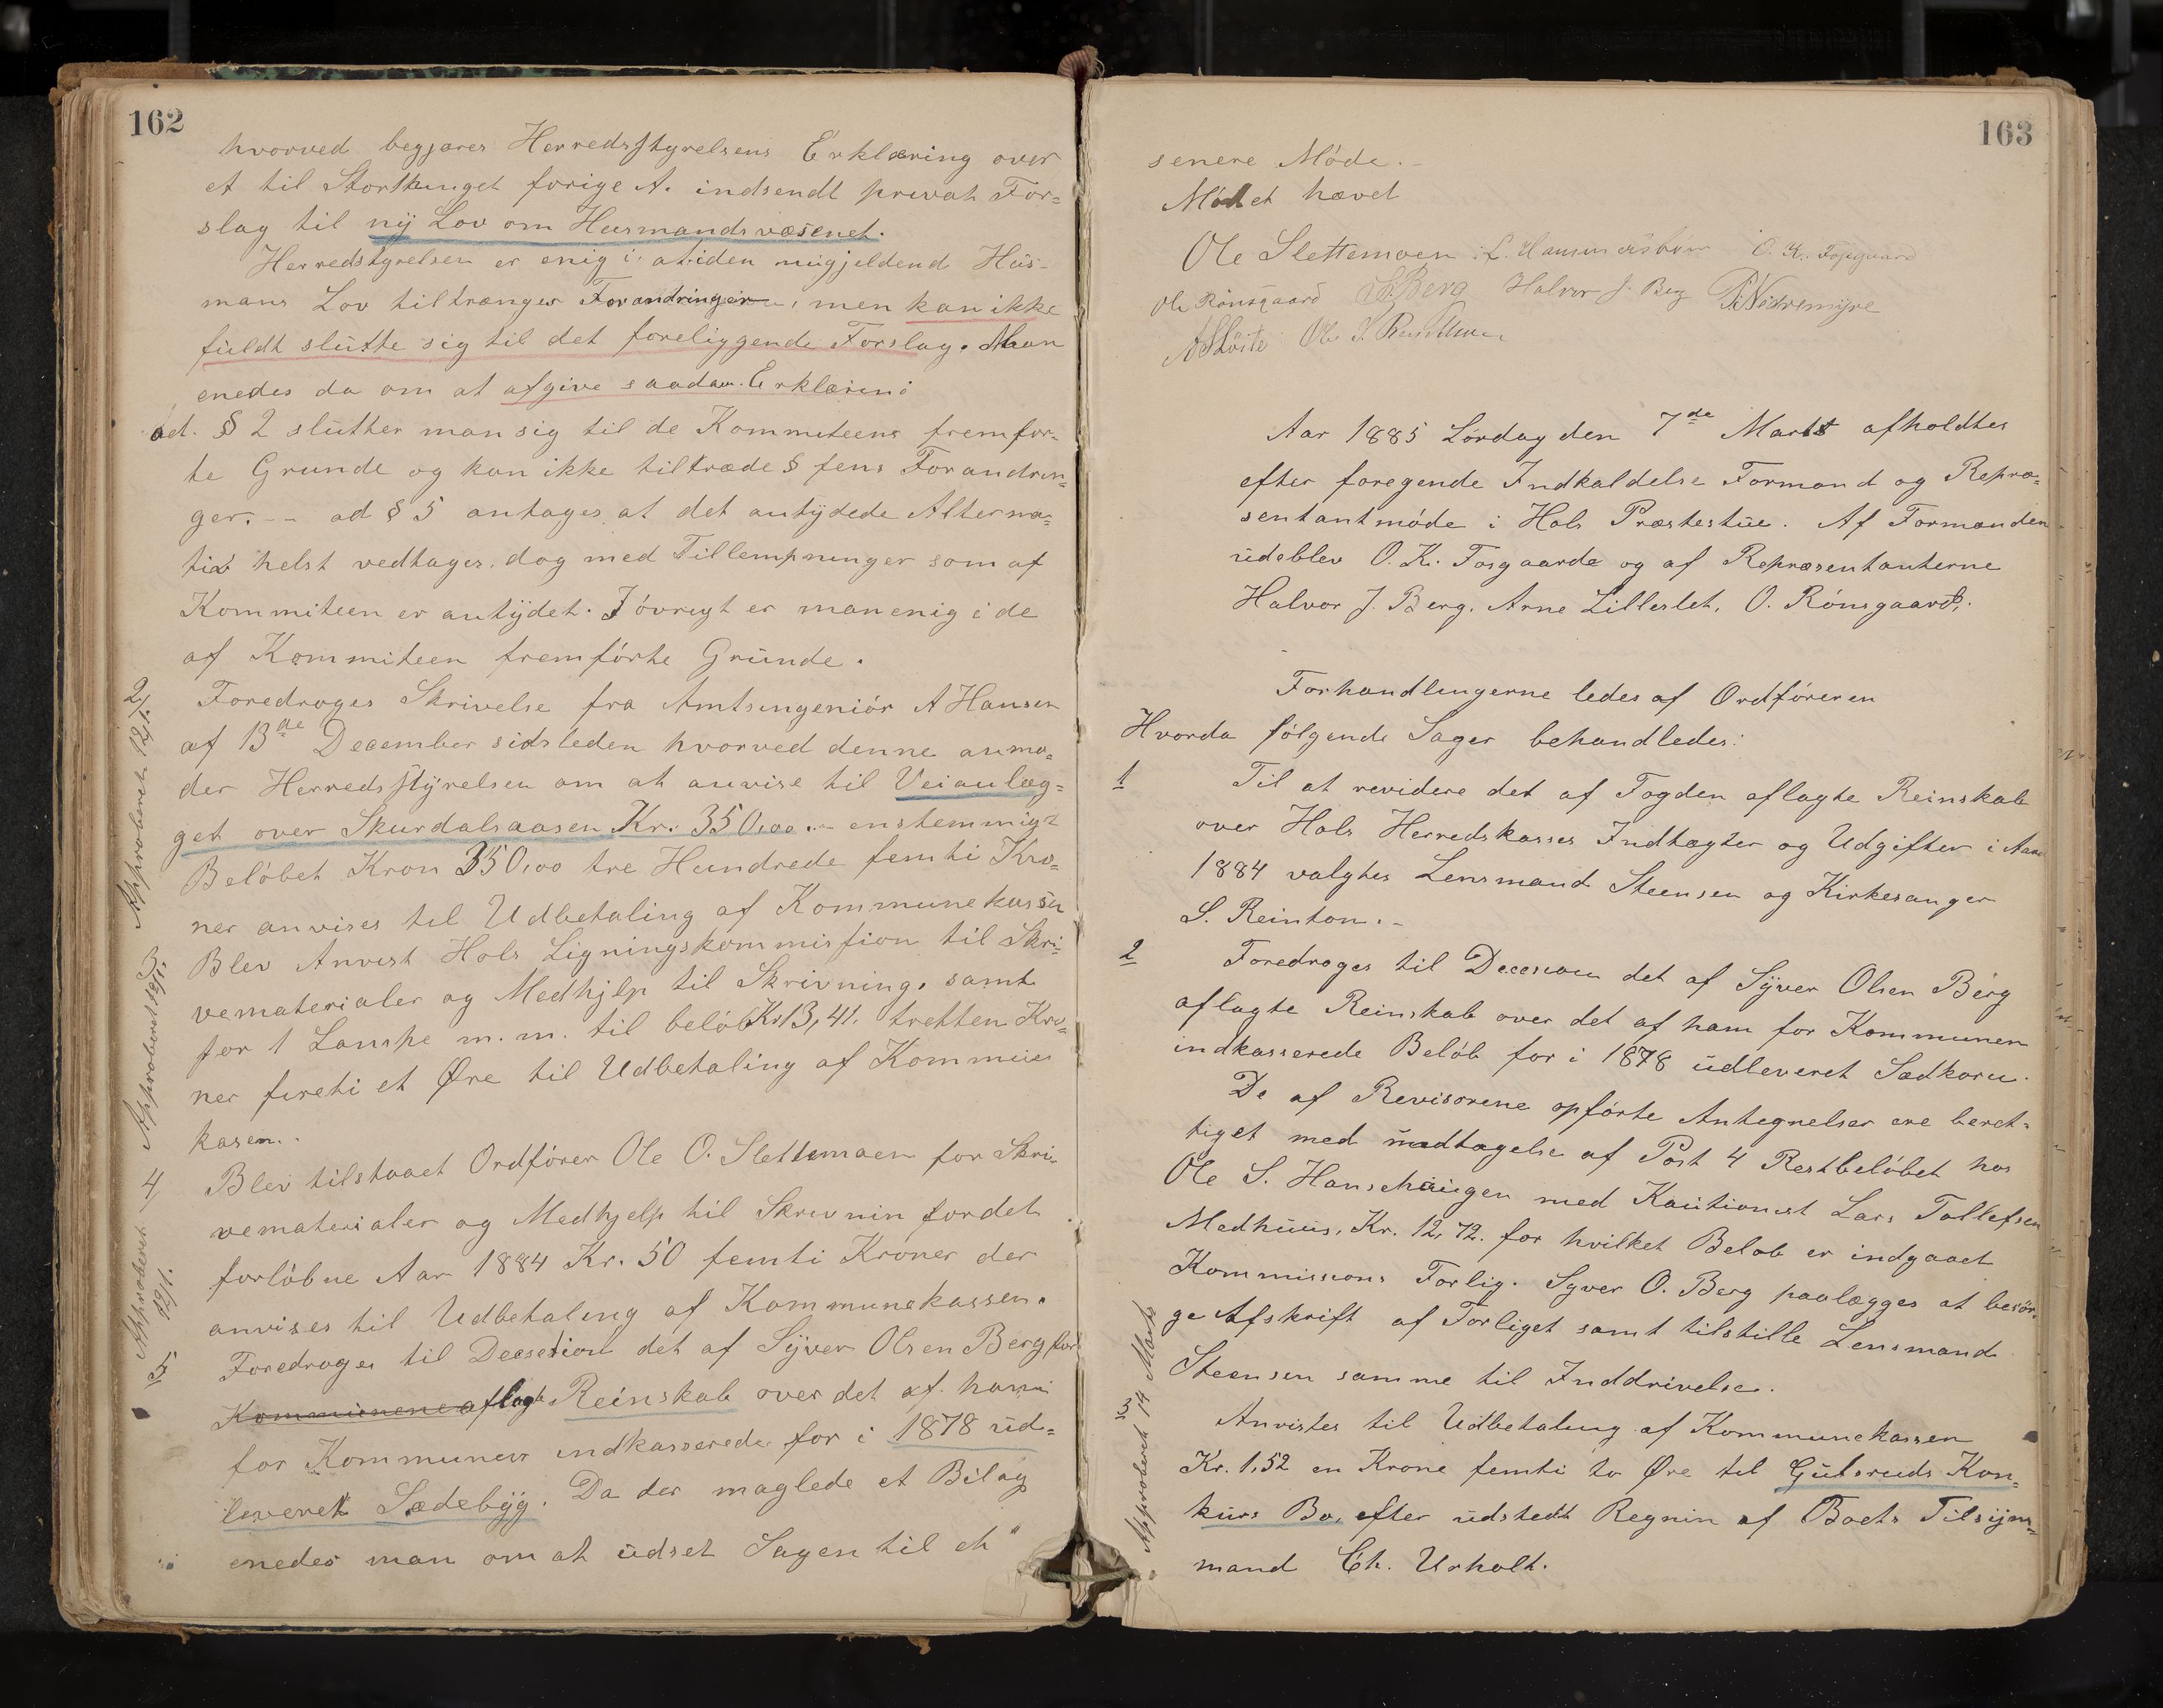 162
hvorved begjæres Herredsstyrelsens Erklæring over
et til Storthinget forige A. indsendt privat For=
slag til ny Lov om Husmandsvæsenet.
Herredstyrelsen er enig i at den nugjeldend Hus-
mans Lov tiltrænger Forandringer, men kan ikke
fuldt slutte sig til det foreliggende Forslag. Man
enedes da om at afgive saadan Erklæring:
ad. § 2 slutter man sig til de Kommiteens fremfør-
te Grunde og kan ikke tiltræde § fens Forandrin=
ger. -- ad § 5 antages at det antydede Alterna=
tiv helst vedtages, dog med Tillempninger som af
Kommiteen er antydet. I øvregt er man enig i de
af Kommiteen fremførte Grunde.
2/ Foredroges Skrivelse fra Amtsingeniør A Hansen
af 13de December sidsleden hvorved denne anmo=
der Herredsstyrelsen om at anvise til Veianlæg=
get over Skurdalsaasen Kr. 350,00.- enstemmigt
Beløbet Kron 350,00 tre Hundrede femti Kro=
ner anvises til Udbetaling af Kommunekassen
Approberet 12/1.
3 Blev Anvist Hols Ligningskommission til Skri=
vematerialer og Medhjelp til Skrivning, samt
for 1 Lampe m. m. til beløb Kr 13,41. tretten Kro=
ner fireti et Øre til Udbetaling af Kommune
kasen.
Approberet 12/1.
4/ Blev tilstaaet Ordfører Ole O. Slettemoen for Skri-
vematerialer og Medhjelp til Skrivnin for det
forløbne Aar 1884 Kr. 50 femti Kroner der
anvises til Udbetaling af Kommunekassen.
Approberet 12/1.
5 Foredroges til Decsetion det af Syver Olsen Berg for
Kommunene aflagte Reinskab over det af ham
for Kommunen indkasserede for i 1878 ud=
leveret Sædebyg. Da der maglede et Bilag
enedes man om at udset Sagen til et
163
senere Møde.-
Mødet hævet
Ole Slettemoen
Ole Rønsgaard Berg Halvor J. Berg
Aar 1885 Lørdag den 7de Marts afholdtes
efter foregende Indkaldelse Formand og Repræ=
sentantmøde i Hols Præstestue. Af Formænden
udeblev O. K. Fosgaarde og af Repræsentanterne
Halvor J. Berg, Arne Lilleslet, O. Rønsgaard.
Forhandlingerne ledes af Ordføreren
Hvorda følgende Sager behandledes:
1 Til at revidere det af Fogden aflagte Reinskab
over Hols Herredskasses Indtægter og Udgifter i Aaret
1884 valgtes Lensmand Steensen og Kirkesanger
S. Reinton.-
2 Foredroges til Decesion det af Syver Olsen Berg
aflagte Reinskab over det af ham for Kommunen
indkasserede Beløb for i 1878 udleveret Sædkorn.
De af Revisorene opførte Antegnelser ere beret-
tiget med undtagelse af Post 4 Restbeløbet hos
Ole S. Hansehaugen med Kautionist Lars Tollefsen
Medhuus, Kr. 12,72. for hvilket Beløb er indgaaet
Kommissions Forlig. Syver O. Berg paalægges at besør-
ge Afskrift af Forliget samt tilstille Lensmand
Steensen samme til Inddrivelse.
3 Anvistes til Udbetaling af Kommunekassen
Kr. 1,52 en Krone femti to Øre til Gulsruds Kon=
kurs Bo, efter udstedt Regnin af Boets Tilsyns=
mand Ch. Urholt.
Approberet 14 Marts